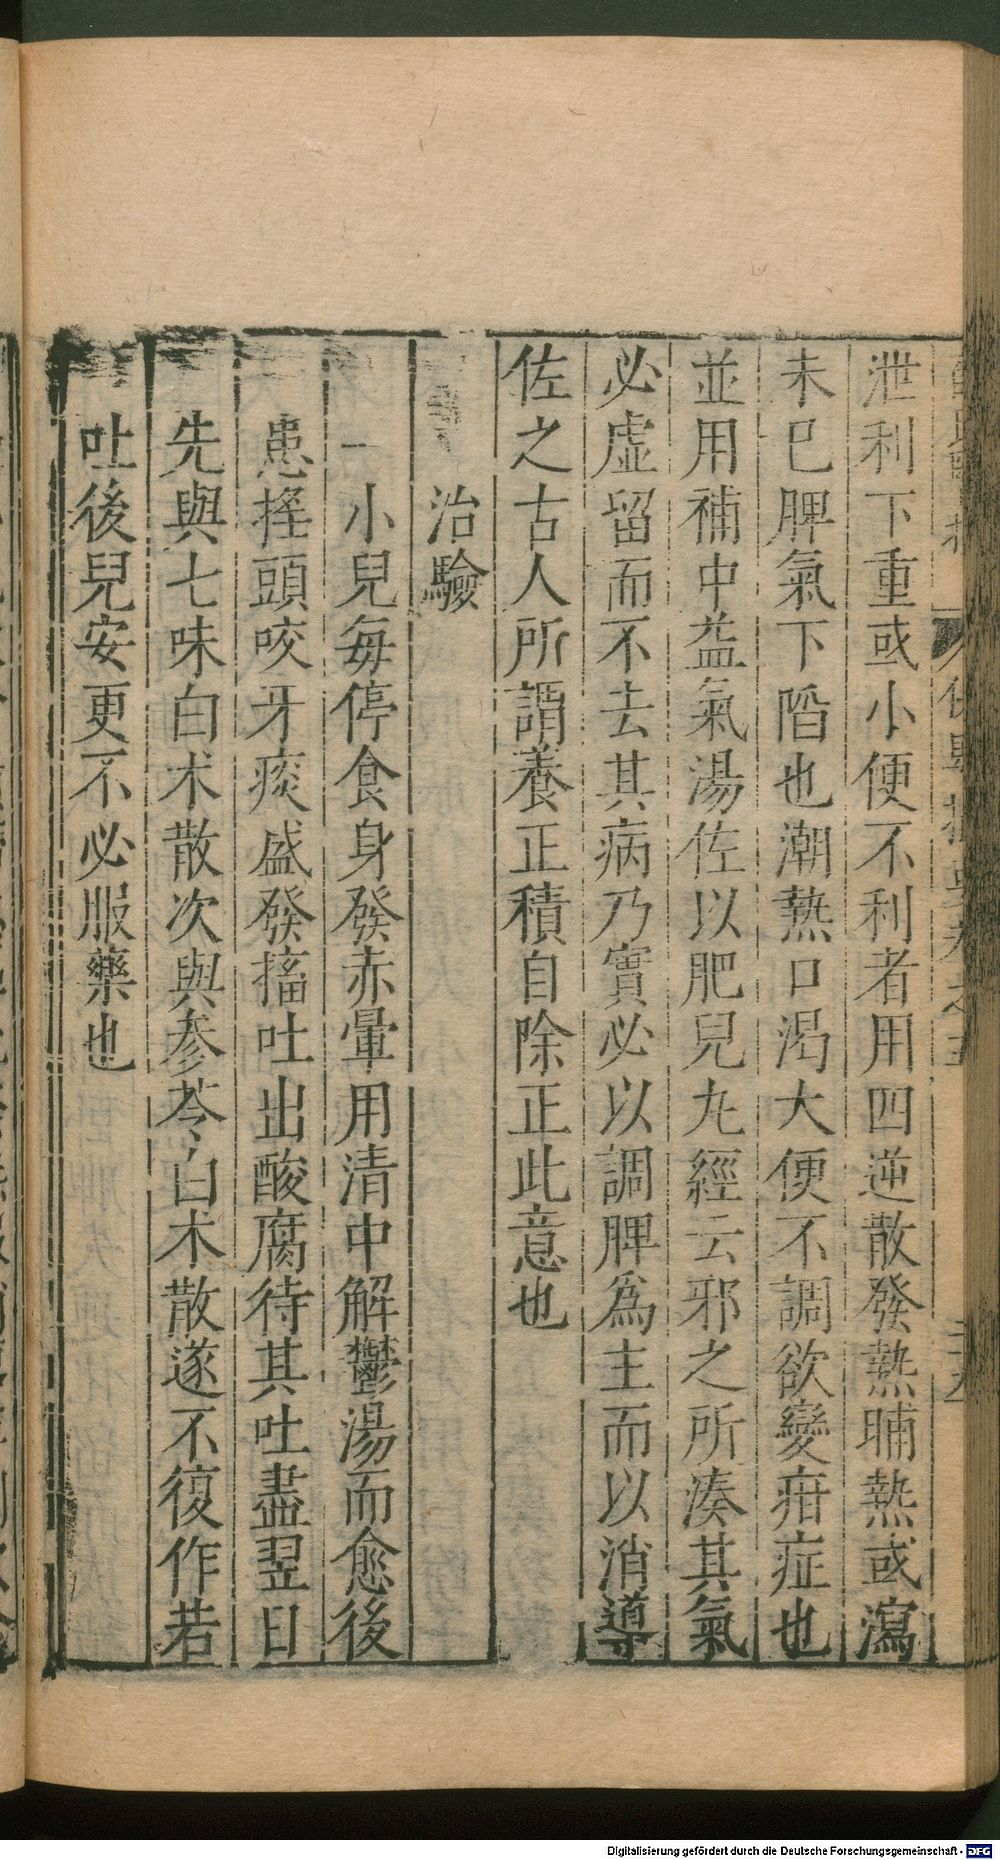 泄利下重或小便不利者用四逆散發熱晡熱或瀉
未已脾氣下陷也潮熱口渴大便不調欲變疳症也
並用補中益氣湯佐以肥兒丸經云邪之所湊其氣
必虛留而不去其病乃實必以調脾爲主而以消導
佐之古人所謂養正積自除正此意也
治驗
一小兒每停食身發赤暈用清中解鬱湯而愈後
患搖頭咬牙痰盛發搐吐出酸腐待其吐盡翌日
先與七味白朮散次與參苓白朮散遂不復作若
吐後兒安更不必服藥也
Digitalisierung gefördert durch die Deutsche Forschungsgemeinschaft - DFG